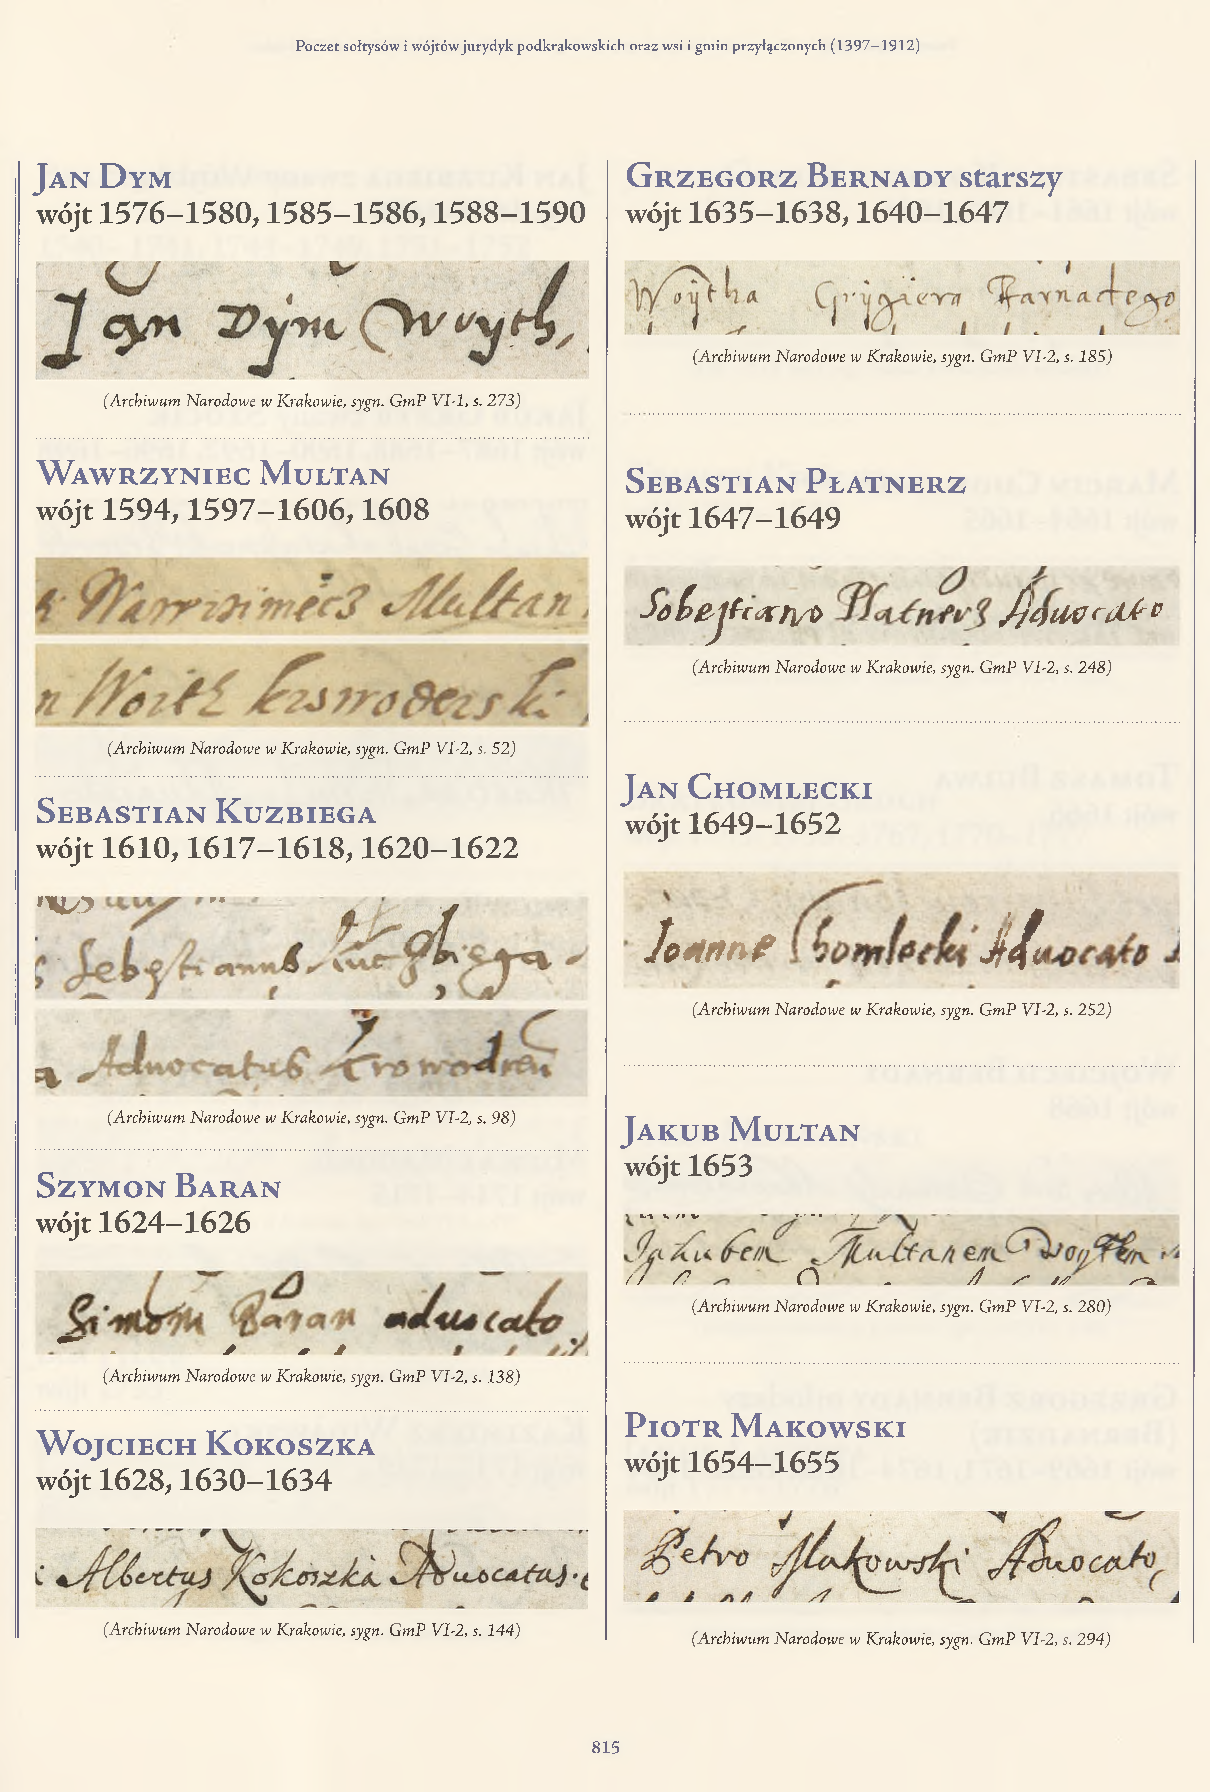 Poczet sołtysów i wójtów jurydyk podkrakowskich oraz wsi i gmin przyłączonych (1397–1912)
Jan Dym
wójt 1576–1580, 1585–1586, 1588–1590
Jan Dym Woyth,
(Archiwum Narodowe w Krakowie, sygn. GmP VI-1, s. 273)
Wawrzyniec Multan
wójt 1594, 1597–1606, 1608
Multan
(Archiwum Narodowe w Krakowie, sygn. GmP VI-2, s. 52)
Sebastian Kuzbiega
wójt 1610, 1617–1618, 1620–1622
Sebestianus
Aduocatus
(Archiwum Narodowe w Krakowie, sygn. GmP VI-2, s. 98)
Szymon Baran
wójt 1624–1626
Simom Baran aduocato
(Archiwum Narodowe w Krakowie, sygn. GmP VI-2, s. 138)
Wojciech Kokoszka
wójt 1628, 1630–1634
Albertus Kokoszka Aduocatus
(Archiwum Narodowe w Krakowie, sygn. GmP VI-2, s. 144)
Grzegorz Bernady starszy
wójt 1635–1638, 1640–1647
Woytha
(Archiwum Narodowe w Krakowie, sygn. GmP VI-2, s. 185)
Sebastian Płatnerz
wójt 1647–1649
Sobestiano Płatnerz Aduocato
(Archiwum Narodowe w Krakowie, sygn. GmP VI-2, s. 248)
Jan Chomlecki
wójt 1649–1652
Ioanne Chomlecki Aduocato
(Archiwum Narodowe w Krakowie, sygn. GmP VI-2, s. 252)
Jakub Multan
wójt 1653
Jakubem Multanem Woytem
(Archiwum Narodowe w Krakowie, sygn. GmP VI-2, s. 280)
Piotr Makowski
wójt 1654–1655
Petro Makowski Aduocato,
(Archiwum Narodowe w Krakowie, sygn. GmP VI-2, s. 294)
815